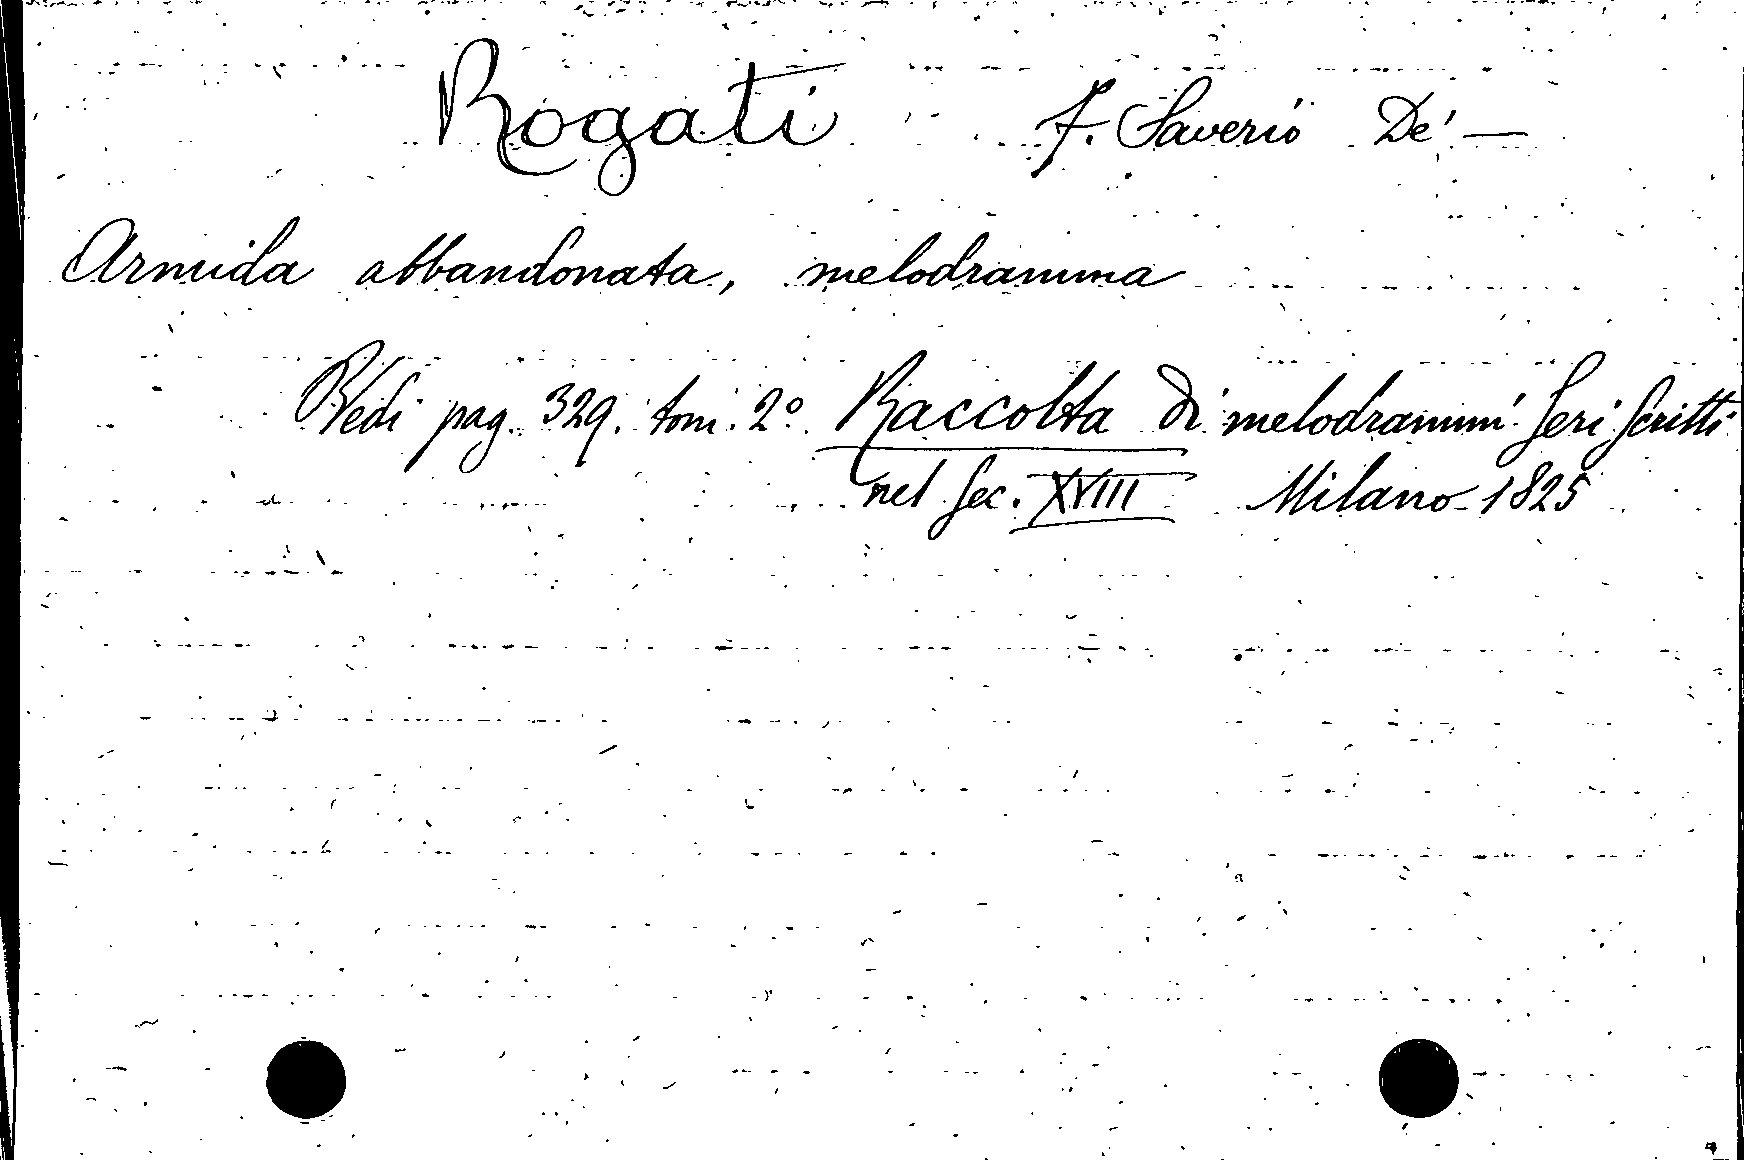 Rogati F. Saverio De' —
Armida abbandonata, melodramma
Vedi pag. 329. tom. 2º. Raccolta di melodrammi Seri Scritti
nel Sec. XVIII Milano - 1825